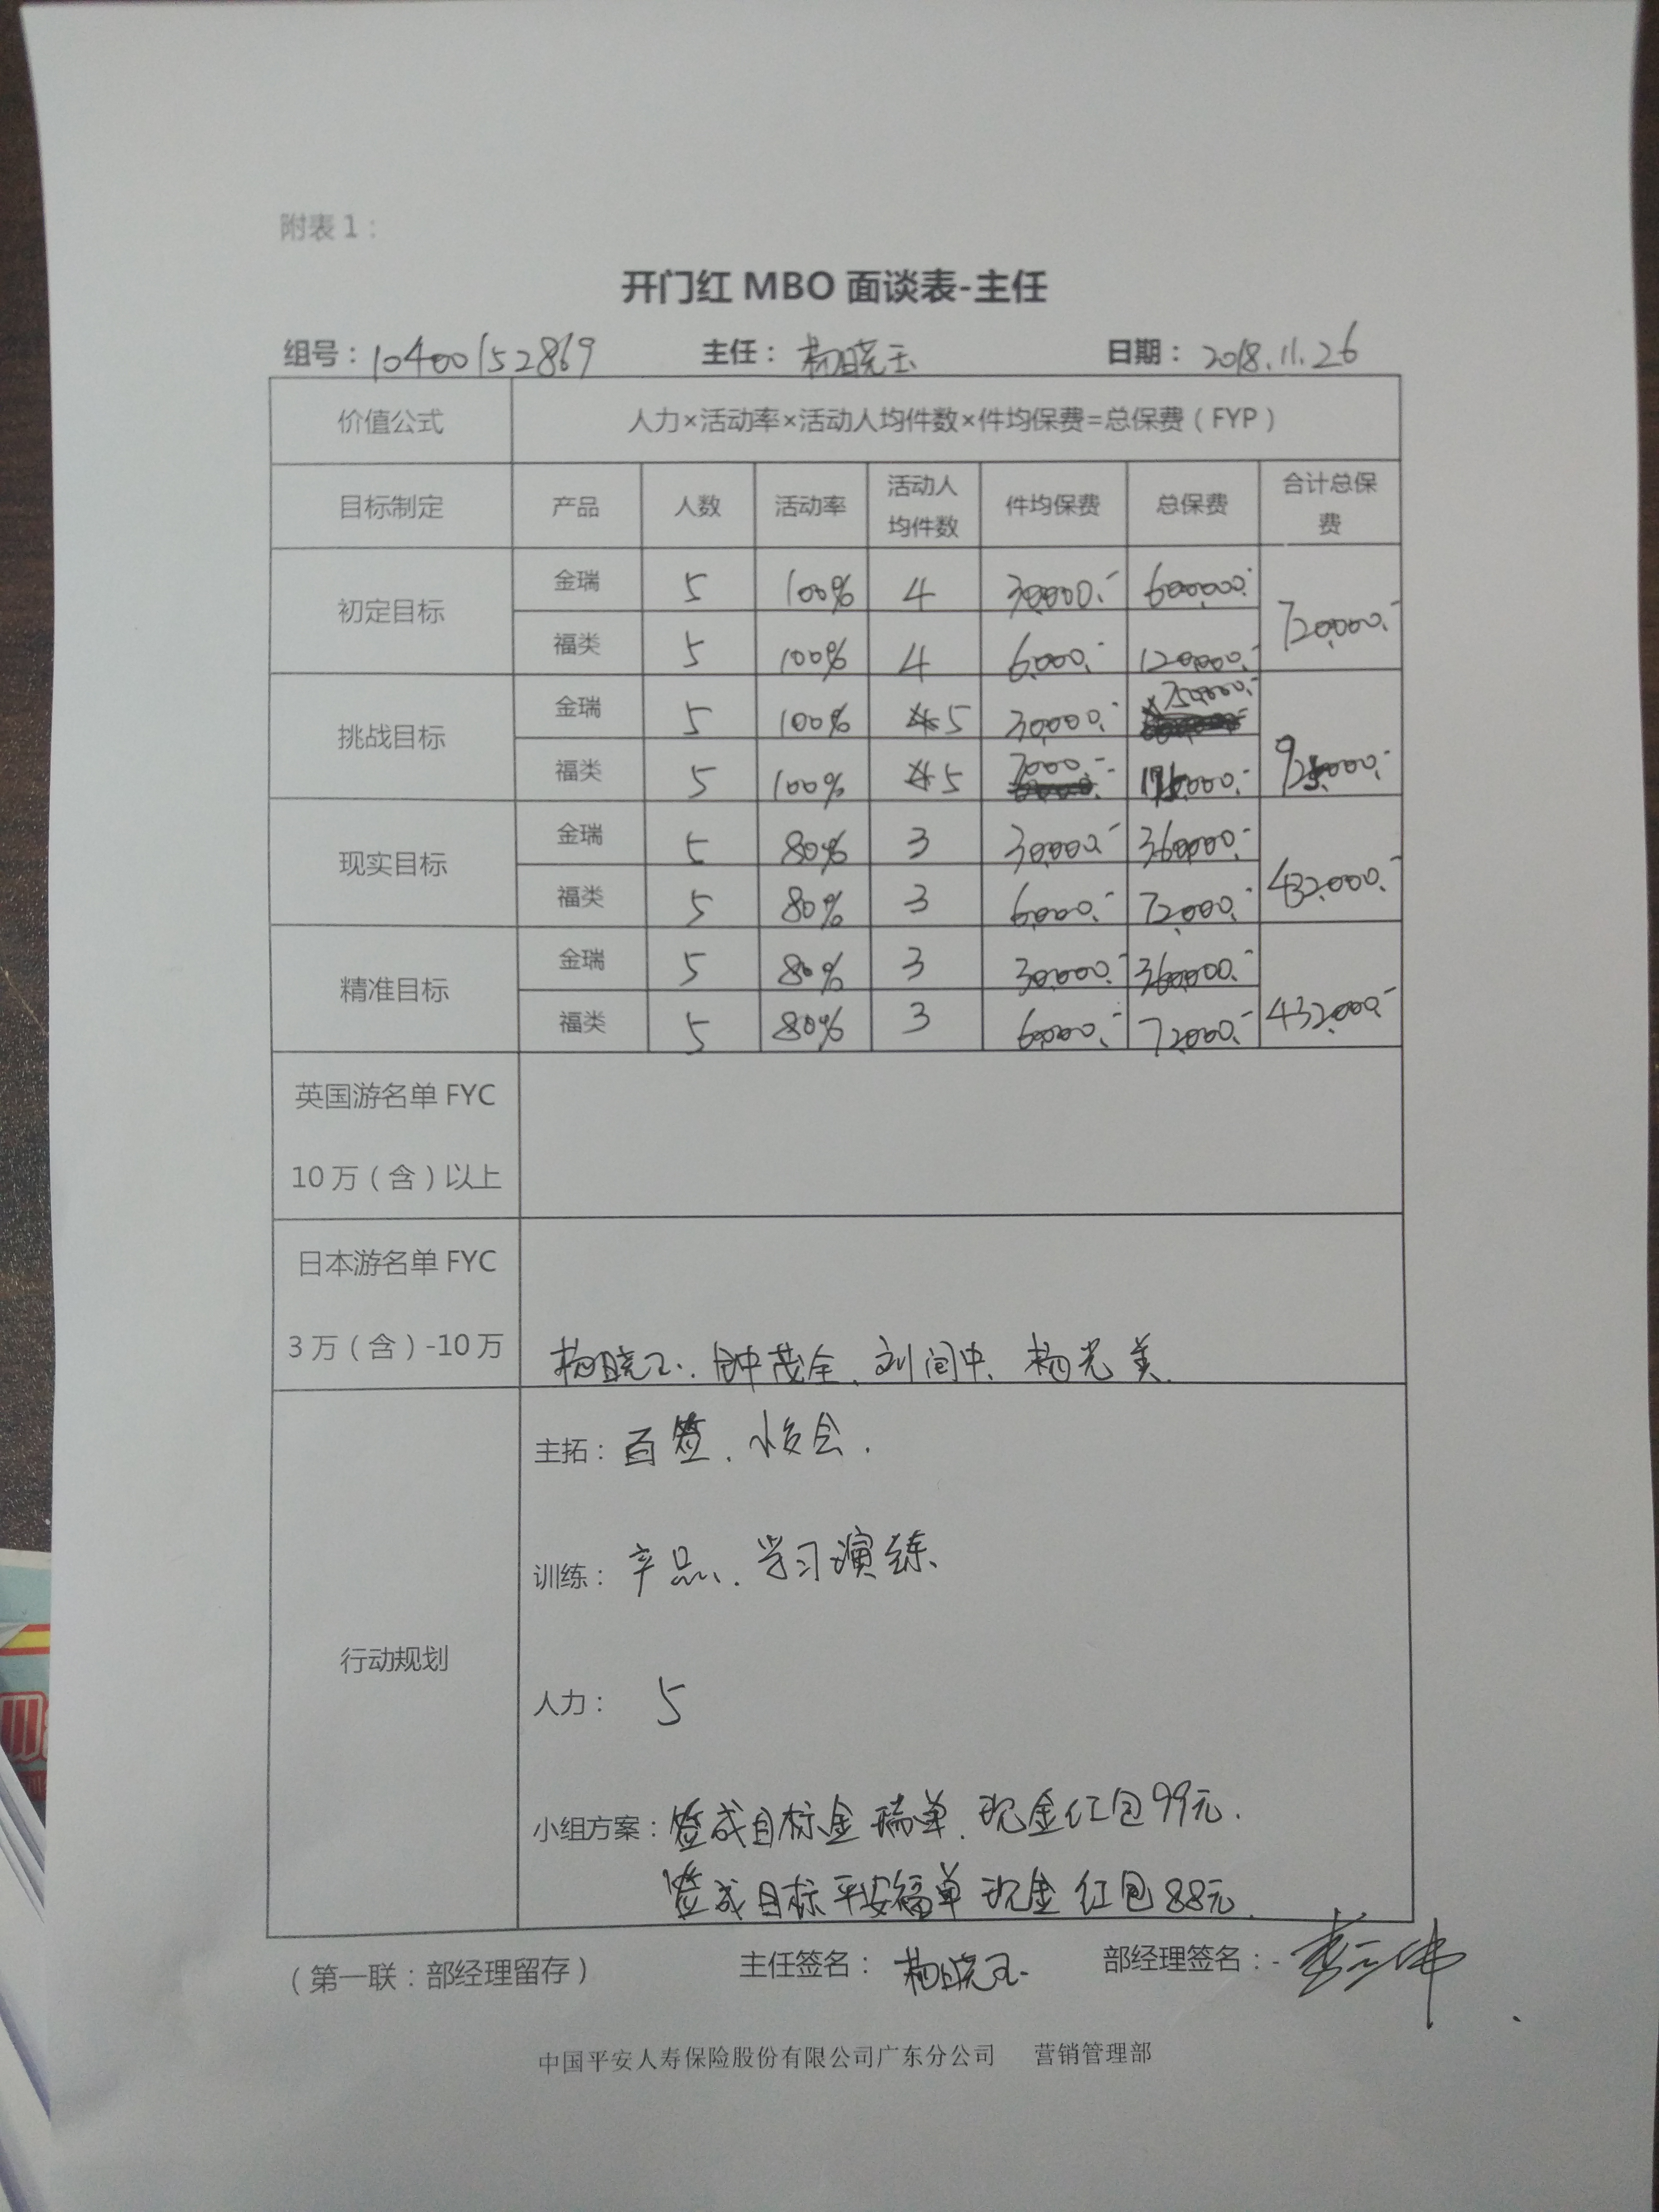 附表1：
开门红 MBO 面谈表-主任
组号：10400152869 主任：杨晓玉 日期：2018.11.26
价值公式 人力×活动率×活动人均件数×件均保费=总保费（FYP）
目标制定 产品 人数 活动率 活动人均件数 件均保费 总保费 合计总保费
初定目标 金瑞 5 100% 4 30,000.- 600,000.- 720,000.-
福类 5 100% 4 6,000.- 120,000.-
挑战目标 金瑞 5 100% 5 30,000.- 750,000.- 925,000.-
福类 5 100% 5 7000.- 175,000.-
现实目标 金瑞 5 80% 3 30,000.- 360,000.- 432,000.-
福类 5 80% 3 6,000.- 72,000.-
精准目标 金瑞 5 80% 3 30,000.- 360,000.- 432,000.-
福类 5 80% 3 6,000.- 72,000.-
英国游名单 FYC
10万（含）以上
日本游名单 FYC
3万（含）-10万 杨晓玉、钟茂全、刘闰中、杨光美
行动规划
主拓：百签、
训练：产品、学习演练、
人力：5
小组方案：签成目标金瑞单、现金红包99元.
签成目标平安福单现金红包88元.
（第一联：部经理留存） 主任签名：杨晓玉 部经理签名：
中国平安人寿保险股份有限公司广东分公司 营销管理部